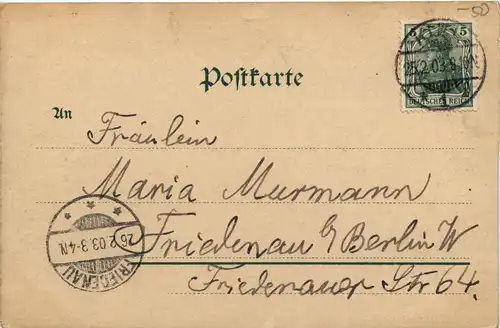 -50
5 5
25.2.03.8-
DEUTSCHES REICH
Postkarte
An
Fräulein
Maria Murmann
Friedenau b/Berlin W
Friedenauer Str 64.
26.2.03.3-4N.
FRIEDENAU